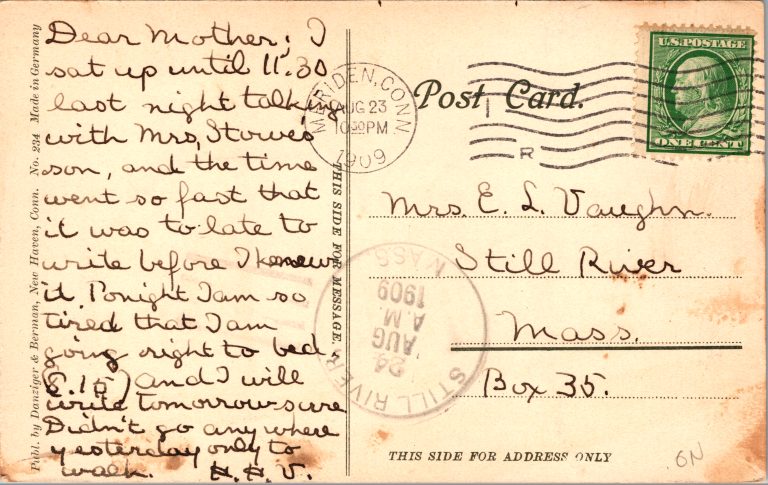 Dear Mother; I
sat up until 11.30
last night talking
with Mrs, Stowe's
son, and the time
went so fast that
it was to late to
write before I knew
it. Tonight I am so
tired that I am
going right to bed,
(8.15) and I will
write tomorrow sure
Didn't go anywhere
yesterday only to
walk. H. H. V.
Publ. by Danziger & Berman, New Haven, Conn. No. 234 Made in Germany
THIS SIDE FOR MESSAGE.
MERIDEN, CONN
AUG 23
10 30 PM
1909
Post Card.
R
U.S. POSTAGE
ONE CENT
Mrs. E. L. Vaughn.
Still River
Mass.
Box 35.
STILL RIVER
MASS
24
AUG
A.M.
1909
THIS SIDE FOR ADDRESS ONLY
6N